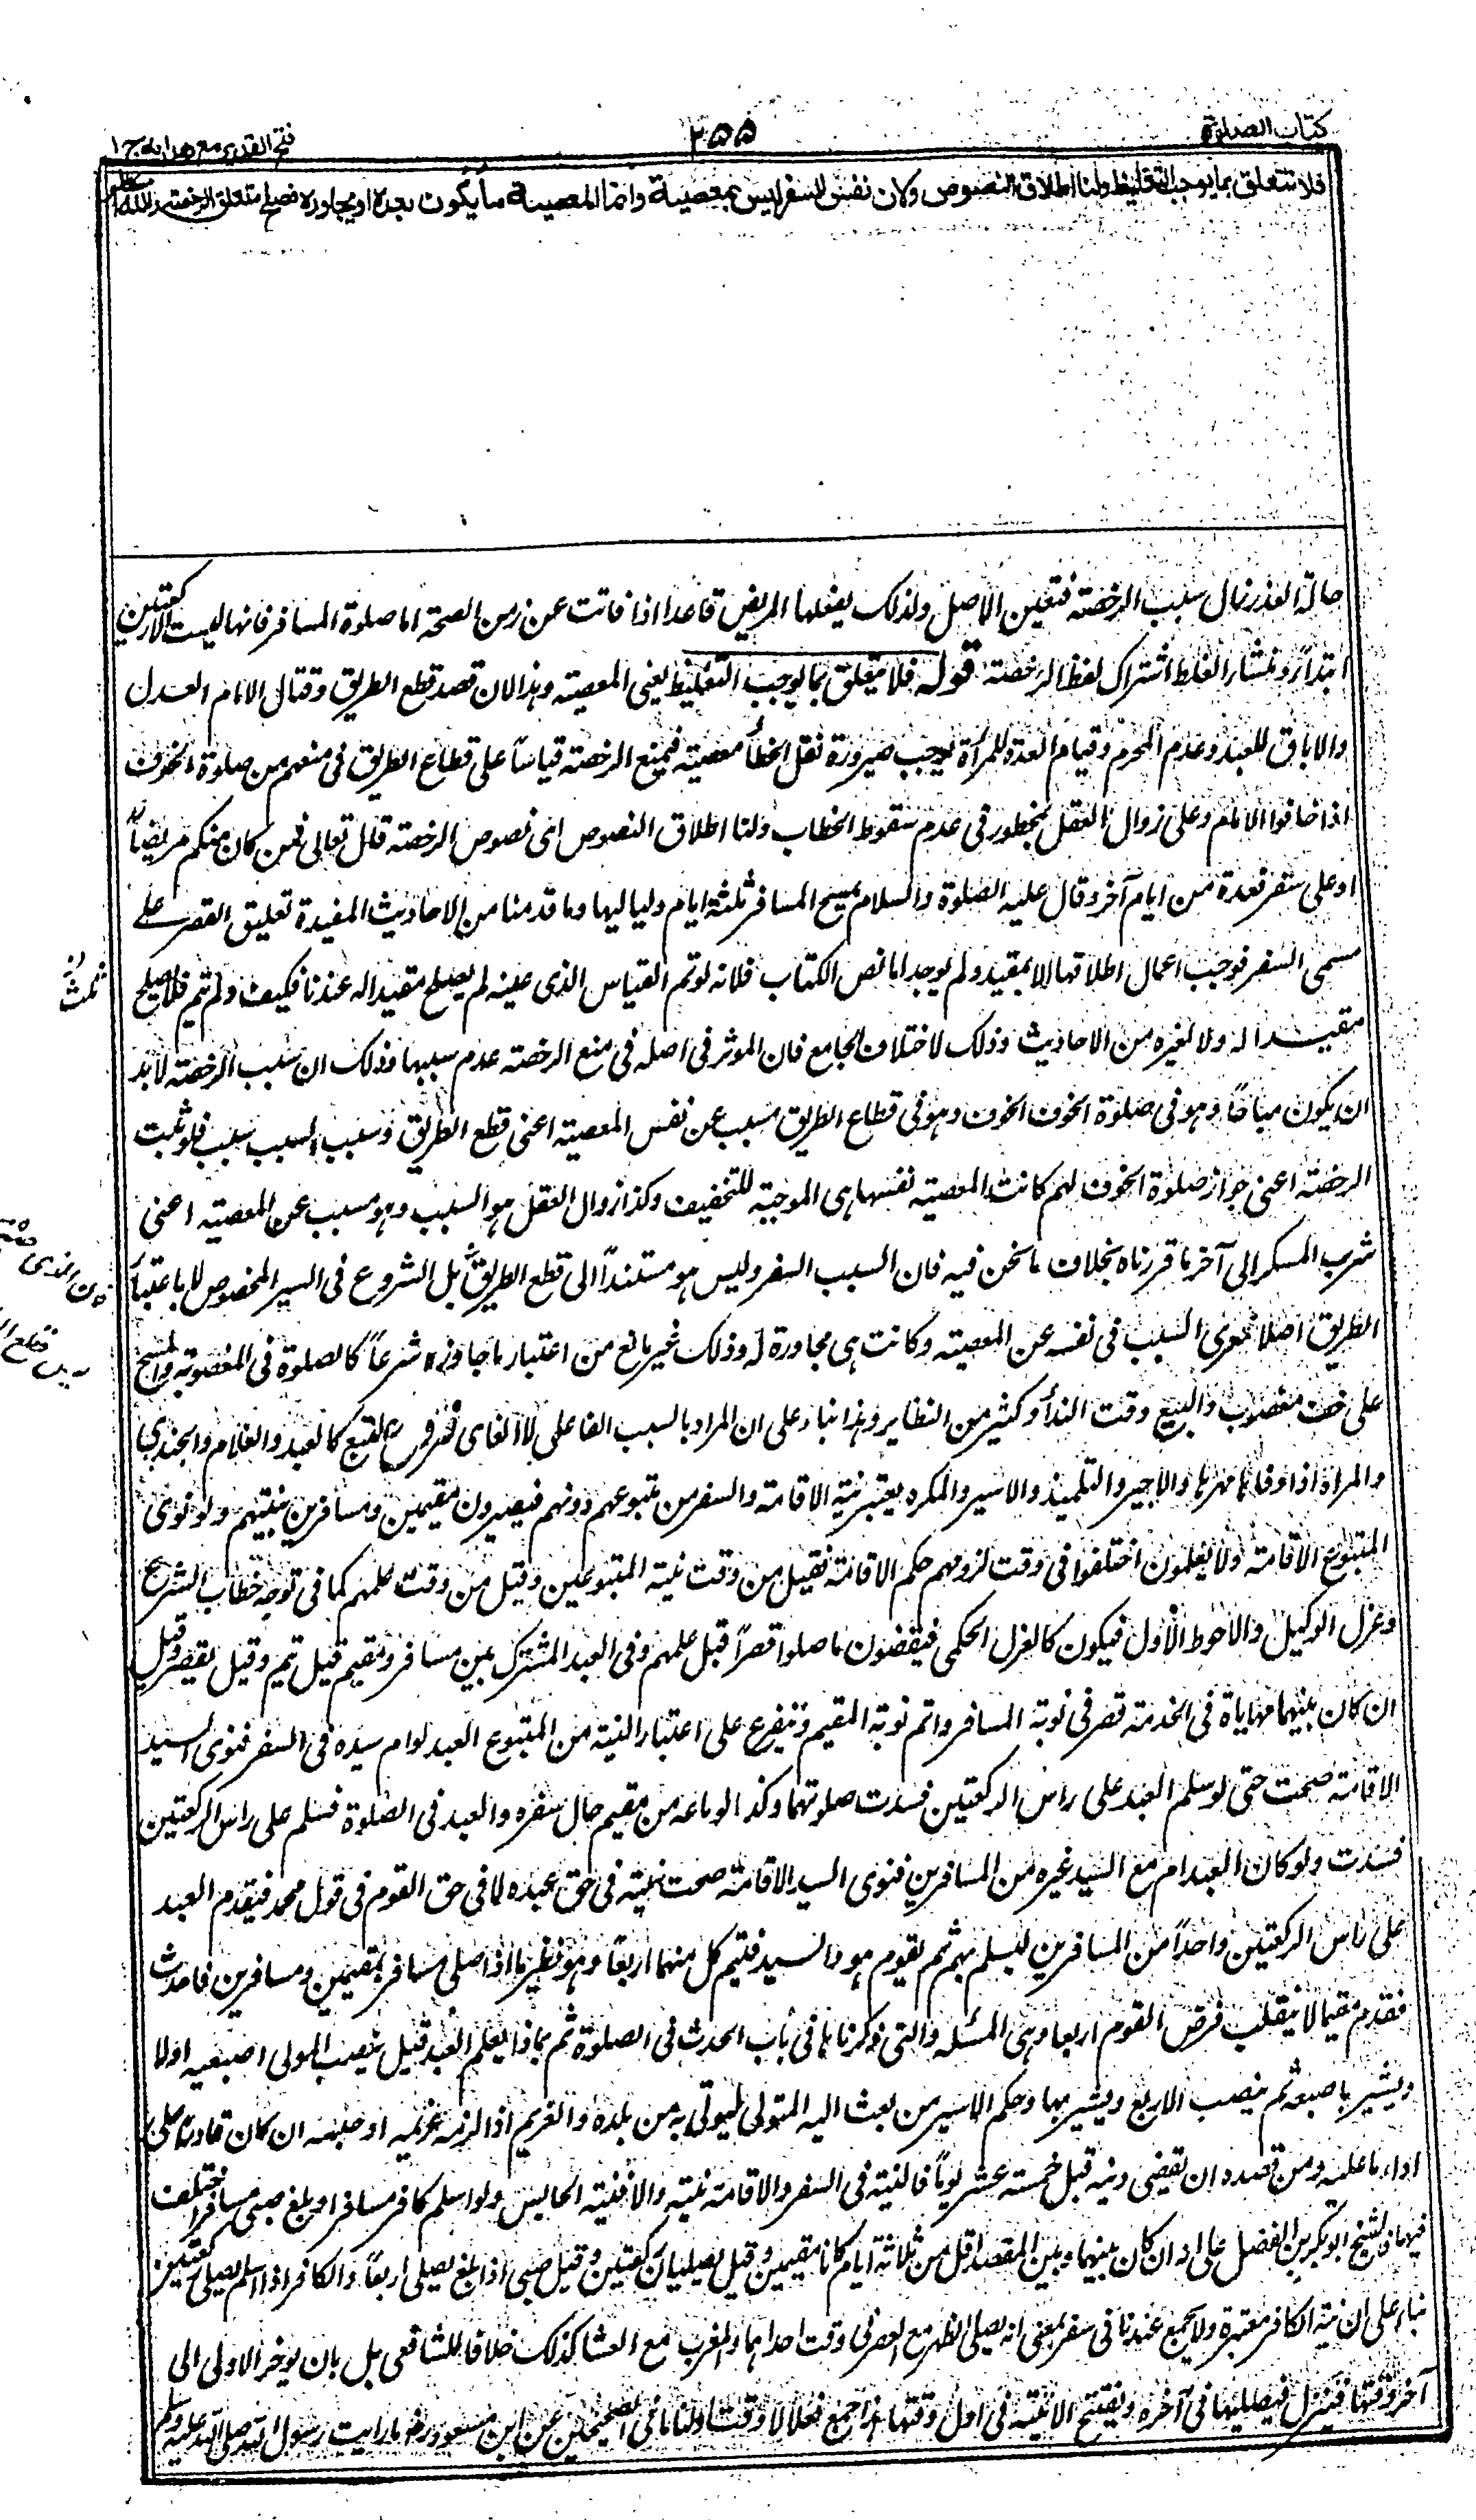 كتاب الصلوة
٢٥٥
فتح القدير مع هدايه ج ١
فلا تتعلق بما يوجب التغليظ ولنا اطلاق النصوص ولان نفس السفر ليس بمعصية وانما المعصية ما يكون بعده او يجاوره فصلح متعلق الرخصة والله اعلم
حالة العذر زال سبب الرخصة فتعين الاصل ولذلك يفعلها المريض قاعدا اذا فاتت عن زمن الصحة اما صلوة المسافر فانها ليست الا ركعتين
ابتداءً ومنشاء الغلط اشتراك لفظ الرخصة قوله فلا يتعلق بما يوجب التغليظ يعنى المعصية وهذا لان قصد قطع الطريق وقتال الامام العدل
والاباق للعبد وعدم المحرم وقيام العدة للمرأة يوجب صيرورة نقل الخطا معصية فيمنع الرخصة قياسًا على قطاع الطريق فى منعهم من صلوة الخوف
اذا خافوا الامام وعلى زوال العقل بمحظور فى عدم سقوط الخطاب ولنا اطلاق النصوص اى نصوص الرخصة قال تعالى فمن كان منكم مريضاً
او على سفر فعدة من ايام آخر وقال عليه الصلوة والسلام يمسح المسافر ثلثة ايام ولياليها وما قدمنا من الاحاديث المفيدة تعليق القصر على
مسمى السفر فوجب اعمال اطلاقها الا بمقيد ولم يوجد اما نص الكتاب فلانه لو تم القياس الذى عينه لم يصلح مقيدا له عندنا فكيف ولم يتم فلا يصلح
مقيدا له ولا لغيره من الاحاديث وذلك لاختلاف الجامع فان الموثر فى اصله فى منع الرخصة عدم سببها وذلك ان سبب الرخصة لابد
ان يكون مباحًا وهو فى صلوة الخوف الخوف وهو فى قطاع الطريق مسبب عن نفس المعصية اعنى قطع الطريق وسبب السبب سبب فلو ثبت
الرخصة اعنى جواز صلوة الخوف لهم كانت المعصية نفسها هى الموجبة للتخفيف وكذا زوال العقل هو السبب وهو مسبب عن المعصية اعنى
شرب المسكر الى آخر ما قررناه بخلاف ما نحن فيه فان السبب السفر وليس هو مستنداً الى قطع الطريق بل الشروع فى السير المخصوص لا باعتبار
الطريق اصلا فعرى السبب فى نفسه عن المعصية وكانت هى مجاورة له وذلك غير مانع من اعتبار ما جاوزه شرعاً كالصلوة فى المغصوبة والمسح
على خف مغصوب والبيع وقت النداء وكثير من النظاير وهذا بناء على ان المراد بالسبب الفاعلى لا الغاى فروع التبع كالعبد والغلام والجندي
والمراة اذا اوفاها مهرها والاجير والتلميذ والاسير والمكره يعتبر نية الاقامة والسفر من متبوعهم دونهم فيصيرون مقيمين ومسافرين بنيتهم ولو نوى
المتبوع الاقامة ولا يعلمون اختلفوا فى وقت لزومهم حكم الاقامة فقيل من وقت نية المتبوعين وقيل من وقت علمهم كما فى توجه خطاب الشرع
وعزل الوكيل والاحوط الاول فيكون كالعزل الحكمى فيقضون ما صلوا قصراً قبل علمهم وفى العبد المشترك بين مسافر ومقيم قيل يتم وقيل يقصر وقيل
ان كان بينهما مهاياة فى الخدمة قصر فى نوبة المسافر واتم نوبة المقيم ويتفرع على اعتبار النية من المتبوع العبد لو ام سيده فى السفر فنوى السيد
الاقامة صحت حتى لو سلم العبد على راس الركعتين فسدت صلوتهما وكذا لو باعه من مقيم حال سفره والعبد فى الصلوة فسلم على راس الركعتين
فسدت ولو كان العبد ام مع السيد غيره من المسافرين فنوى السيد الاقامة صحت نيته فى حق عبده لا فى حق القوم فى قول محمد فيقدم العبد
على راس الركعتين واحداً من المسافرين ليسلم بهم ثم يقوم هو والسيد فيتم كل منهما اربعاً وهو نظير ما اذا صلى مسافر بمقيمين ومسافرين فاحدث
فقدم مقيما لا ينقلب فرض القوم اربعا وهى المسئلة التى ذكرناها فى باب الحدث فى الصلوة ثم بماذا يعلم العبد قيل ينصب المولى اصبعيه اولا
ويشير باصبعه ثم ينصب الاربع ويشير بها وحكم الاسير من بعث اليه المتولى ليوتى به من بلده والغريم اذا لزمه غريمه او حبسه ان كان قادرا على
اداء ما عليه ومن قصده ان يقضى دينه قبل خمسة عشر يوماً فالنية فى السفر والاقامة نيته والا فنية الحابس ولو اسلم كافر مسافر او بلغ صبى مسافرا فختلف
فيها فالشيخ ابو بكر بن الفضل على انه ان كان بينهما وبين المقصد اقل من ثلاثة ايام كانا مقيمين وقيل يصليان ركعتين وقيل صبى اذا بلغ يصلى اربعاً والكافر اذا اسلم يصلى ركعتين
بناء على ان نية الكافر معتبرة ولا يجمع عندنا فى سفر بمعنى انه يصلى الظهر مع العصر فى وقت احداهما والمغرب مع العشا كذلك خلافا للشافعى بل بان يوخر الاولى الى
آخر وقتها فينزل فيصليها فى آخره ويفتتح الاتية فى اول وقتها هذا جمع فعلا لا وقتا ولنا ما فى الصحيحين عن ابن مسعود رض ما رايت رسول الله صلى الله عليه وسلم